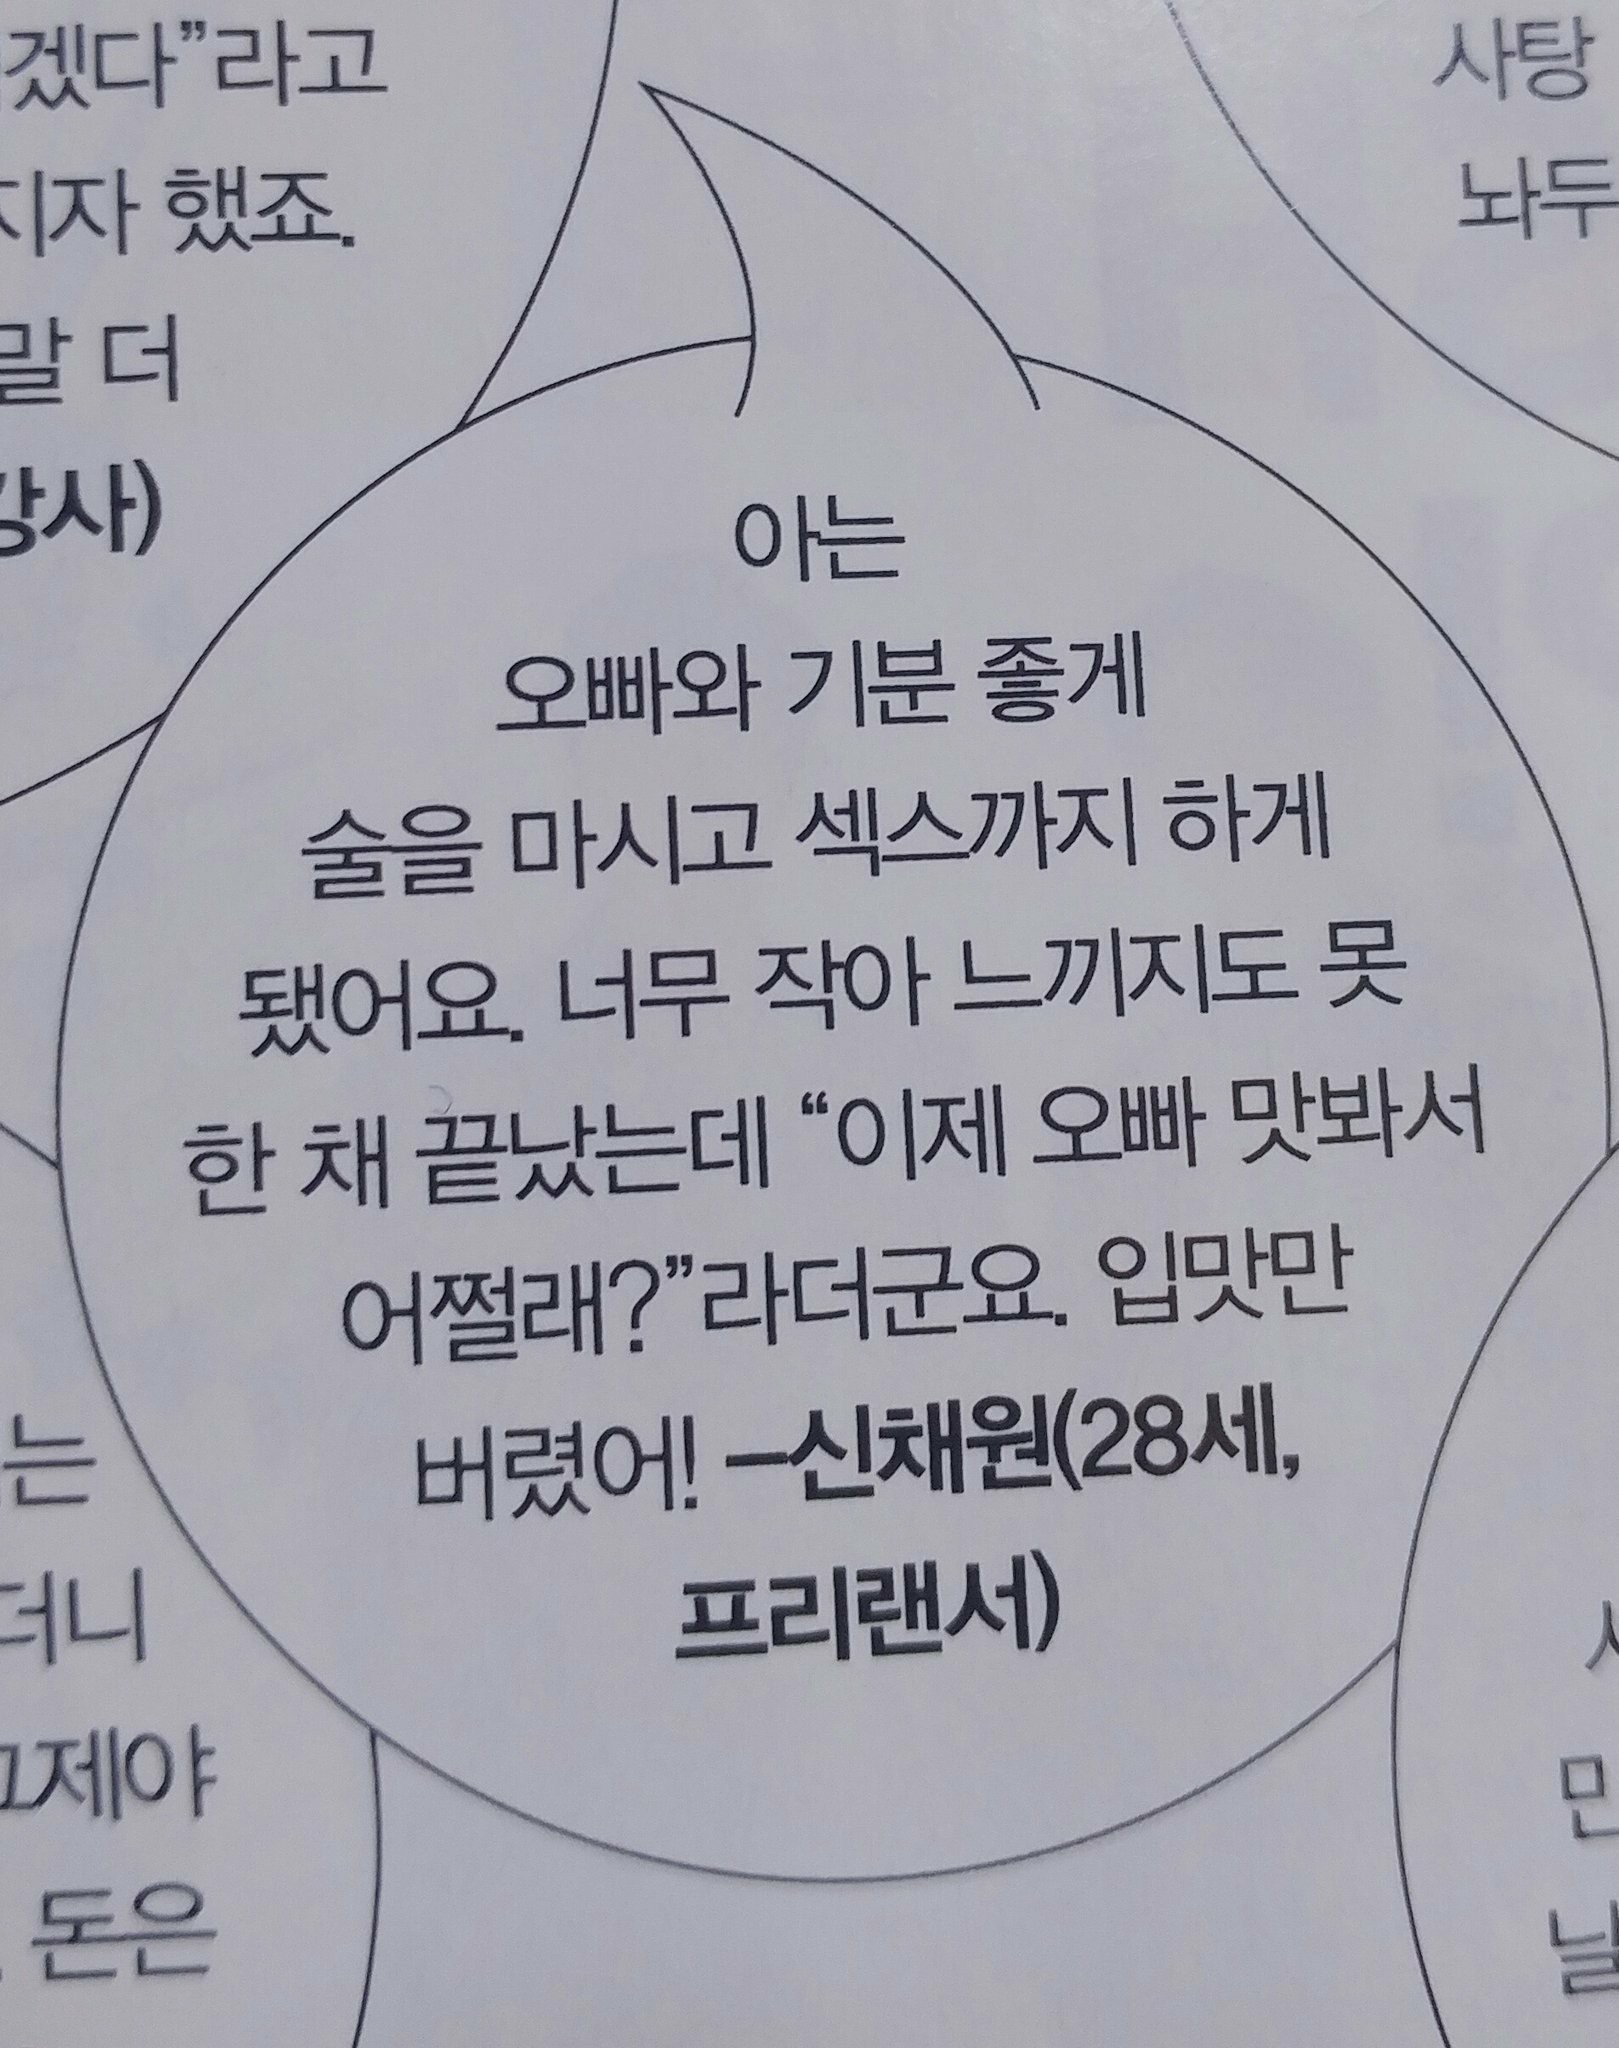 겠다”라고
지자 했죠.
말 더
강사)
사탕
놔두
아는
오빠와 기분 좋게
술을 마시고 섹스까지 하게
됐어요. 너무 작아 느끼지도 못
한 채 끝났는데 “이제 오빠 맛봐서
어쩔래?”라더군요. 입맛만
버렸어! –신채원(28세,
프리랜서)
는
더니
그제야
돈은